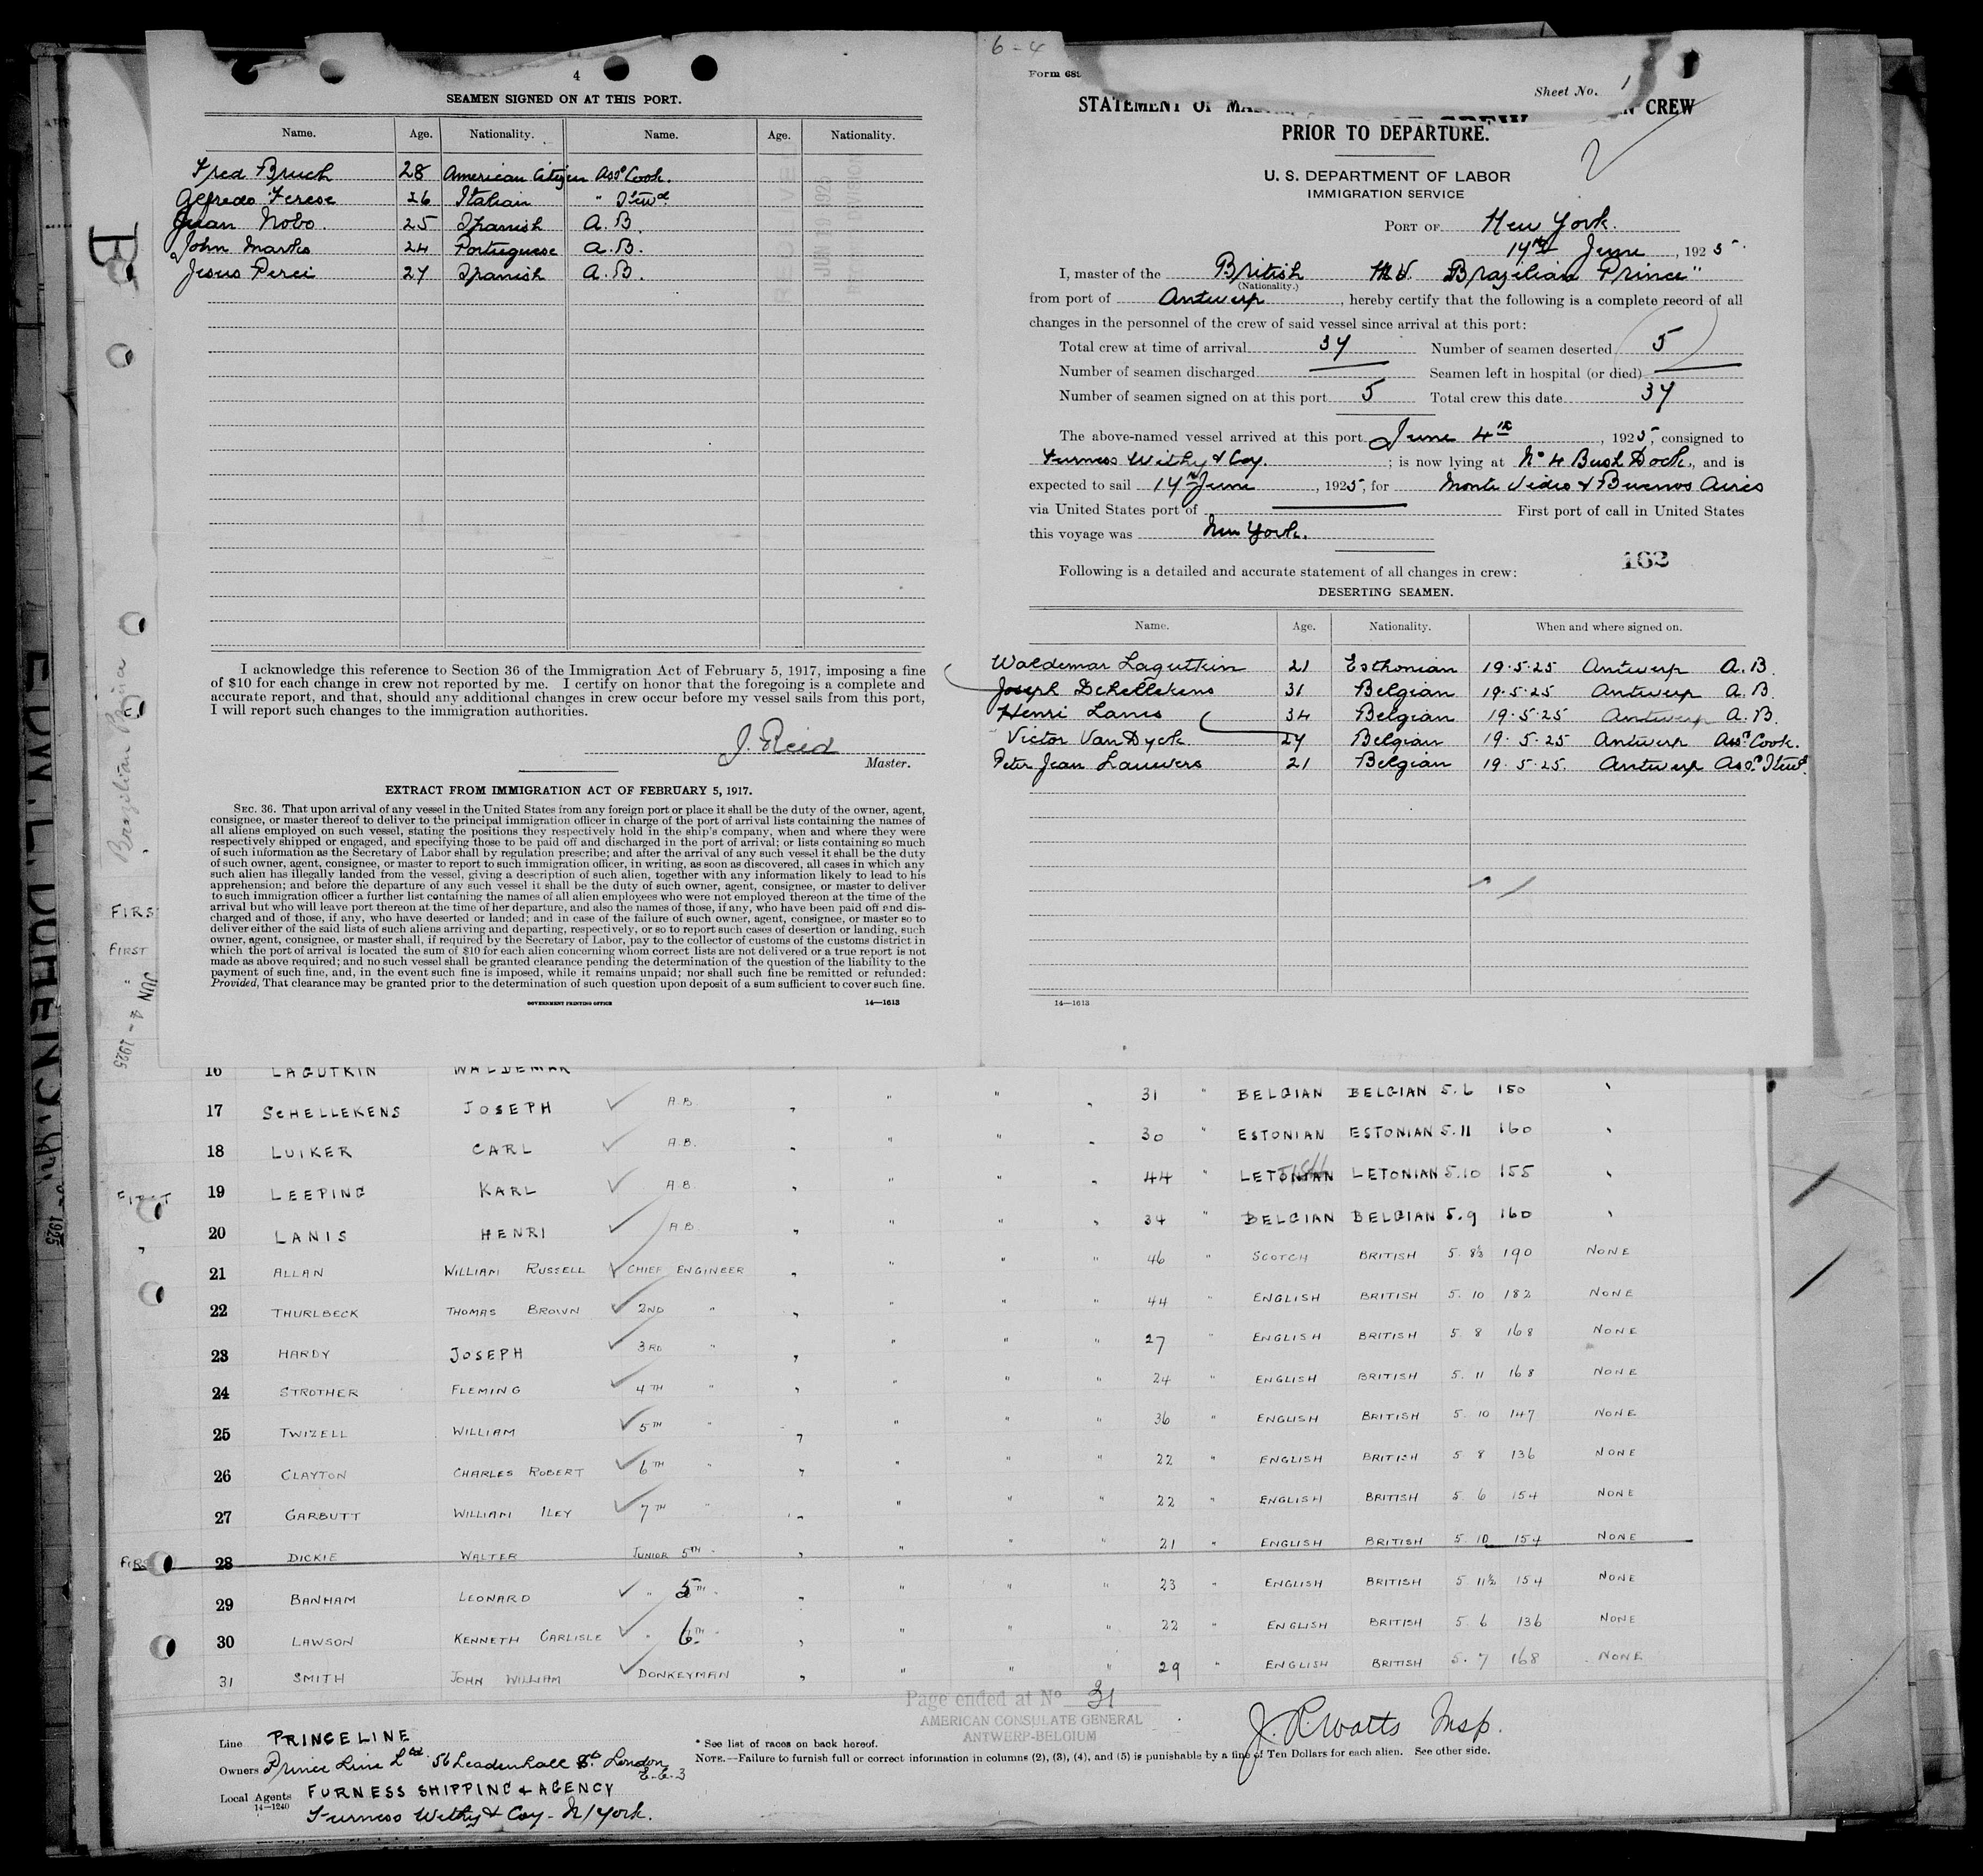 4
SEAMEN SIGNED ON AT THIS PORT.
Name. Age. Nationality. Name. Age. Nationality.
Fred Bruch 28 American Citizen Asst Cook.
Alfredo Ferese 26 Italian " Stewd
Juan Nobo. 25 Spanish A.B.
John Marks 24 Portuguese A.B.
Jesus Perei 27 Spanish A.B.
RECEIVED
JUN 19 1925
DIVISION
I acknowledge this reference to Section 36 of the Immigration Act of February 5, 1917, imposing a fine
of $10 for each change in crew not reported by me. I certify on honor that the foregoing is a complete and
accurate report, and that, should any additional changes in crew occur before my vessel sails from this port,
I will report such changes to the immigration authorities.
J. Reid
Master.
EXTRACT FROM IMMIGRATION ACT OF FEBRUARY 5, 1917.
SEC. 36. That upon arrival of any vessel in the United States from any foreign port or place it shall be the duty of the owner, agent,
consignee, or master thereof to deliver to the principal immigration officer in charge of the port of arrival lists containing the names of
all aliens employed on such vessel, stating the positions they respectively hold in the ship's company, when and where they were
respectively shipped or engaged, and specifying those to be paid off and discharged in the port of arrival; or lists containing so much
of such information as the Secretary of Labor shall by regulation prescribe; and after the arrival of any such vessel it shall be the duty
of such owner, agent, consignee, or master to report to such immigration officer, in writing, as soon as discovered, all cases in which any
such alien has illegally landed from the vessel, giving a description of such alien, together with any information likely to lead to his
apprehension; and before the departure of any such vessel it shall be the duty of such owner, agent, consignee, or master to deliver
to such immigration officer a further list containing the names of all alien employees who were not employed thereon at the time of the
arrival but who will leave port thereon at the time of her departure, and also the names of those, if any, who have been paid off and dis-
charged and of those, if any, who have deserted or landed; and in case of the failure of such owner, agent, consignee, or master so to
deliver either of the said lists of such aliens arriving and departing, respectively, or so to report such cases of desertion or landing, such
owner, agent, consignee, or master shall, if required by the Secretary of Labor, pay to the collector of customs of the customs district in
which the port of arrival is located the sum of $10 for each alien concerning whom correct lists are not delivered or a true report is not
made as above required; and no such vessel shall be granted clearance pending the determination of the question of the liability to the
payment of such fine, and, in the event such fine is imposed, while it remains unpaid; nor shall such fine be remitted or refunded:
Provided, That clearance may be granted prior to the determination of such question upon deposit of a sum sufficient to cover such fine.
GOVERNMENT PRINTING OFFICE 14—1613
6-4
Form 689
Sheet No. 1
STATEMENT OF CREW
PRIOR TO DEPARTURE.
U. S. DEPARTMENT OF LABOR
IMMIGRATION SERVICE
PORT OF New York.
14th June, 1925.
I, master of the British M.V. Brazilian Prince"
(Nationality.)
from port of Antwerp, hereby certify that the following is a complete record of all
changes in the personnel of the crew of said vessel since arrival at this port:
Total crew at time of arrival 37 Number of seamen deserted 5
Number of seamen discharged — Seamen left in hospital (or died) —
Number of seamen signed on at this port 5 Total crew this date 37
The above-named vessel arrived at this port June 4th, 1925, consigned to
Furness Withy & Coy.; is now lying at No 4 Bush Dock, and is
expected to sail 14th June, 1925, for Monte Video & Buenos Aires
via United States port of — First port of call in United States
this voyage was New York.
162
Following is a detailed and accurate statement of all changes in crew:
DESERTING SEAMEN.
Name. Age. Nationality. When and where signed on.
Waldemar Lagutkin 21 Esthonian 19.5.25 Antwerp A.B.
Joseph Schellekens 31 Belgian 19.5.25 Antwerp A.B.
Henri Lanis 34 Belgian 19.5.25 Antwerp A.B.
Victor Van Dyck 27 Belgian 19.5.25 Antwerp Asst Cook.
Peter Jean Lauwers 21 Belgian 19.5.25. Antwerp Asst Stewd.
14—1613
Brazilian Prince
FIRST
FIRST
JUN 4 - 1925
16 LAGUTKIN WALDEMAR
17 SCHELLEKENS JOSEPH A.B. " " " 31 " BELGIAN BELGIAN 5.6 150
18 LUIKER CARL A.B. " " " 30 " ESTONIAN ESTONIAN 5.11 160
FIRST 19 LEEPING KARL A.B. " " " 44 " LETONIAN LETONIAN 5.10 155
20 LANIS HENRI A.B. " " " 34 " BELGIAN BELGIAN 5.9 160
21 ALLAN WILLIAM RUSSELL CHIEF ENGINEER " " " 46 " SCOTCH BRITISH 5. 8½ 190 NONE
22 THURLBECK THOMAS BROWN 2ND " " " " 44 " ENGLISH BRITISH 5. 10 182 NONE
23 HARDY JOSEPH 3RD " " " " 27 " ENGLISH BRITISH 5 8 168 NONE
24 STROTHER FLEMING 4TH " " " " 24 " ENGLISH BRITISH 5. 11 168 NONE
25 TWIZELL WILLIAM 5TH " " " " 36 " ENGLISH BRITISH 5. 10 147 NONE
26 CLAYTON CHARLES ROBERT 6TH " " " " 22 " ENGLISH BRITISH 5 8 136 NONE
27 GARBUTT WILLIAM ILEY 7TH " " " " 22 " ENGLISH BRITISH 5 6 154 NONE
FIRST 28 DICKIE WALTER JUNIOR 5TH " " " 21 " ENGLISH BRITISH 5. 10 154 NONE
29 BANHAM LEONARD " 5TH " " " 23 " ENGLISH BRITISH 5 11½ 154 NONE
30 LAWSON KENNETH CARLISLE " 6TH " " " 22 " ENGLISH BRITISH 5 6 136 NONE
31 SMITH JOHN WILLIAM DONKEYMAN " " " 29 " ENGLISH BRITISH 5. 7 168 NONE
Page ended at No 31
AMERICAN CONSULATE GENERAL
ANTWERP-BELGIUM
J. R. Watts Insp.
Line PRINCE LINE
Owners Prince Line Ltd. 56 Leadenhall St. London
E.C.3
Local Agents FURNESS SHIPPING & AGENCY
14—1240
Furness Withy & Coy - N/York.
* See list of races on back hereof.
NOTE.—Failure to furnish full or correct information in columns (2), (3), (4), and (5) is punishable by a fine of Ten Dollars for each alien. See other side.
EDW. L. DOHENY
1925